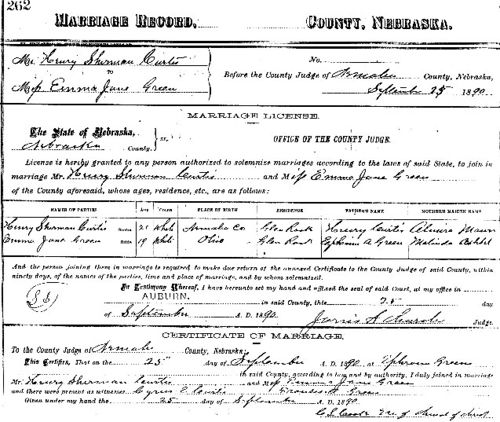 262
MARRIAGE RECORD. COUNTY, NEBRASKA.
Mr. Henry Sherman Curtis
TO
Miss Emma Jane Green
No.
Before the County Judge of Nemaha County, Nebraska,
September 25 1890.
MARRIAGE LICENSE.
The State of Nebraska, ss.
County.
OFFICE OF THE COUNTY JUDGE.
License is hereby granted to any person authorized to solemnize marriages according to the laws of said State, to join in
marriage Mr. Henry Sherman Curtis and Miss Emma Jane Green
of the County aforesaid, whose ages, residence, etc., are as follows:
NAMES OF PARTIES Age Color PLACE OF BIRTH RESIDENCE FATHER'S NAME MOTHER'S MAIDEN NAME
Henry Sherman Curtis 21 White Nemaha Co Glen Rock Henry Curtis
Emma Jane Green 19 White Ohio Glen Rock Ephraim A Green Malinda
And the person joining them in marriage is required to make due return of the annexed Certificate to the County Judge of said County, within
ninety days, of the names of the parties, time and place of marriage, and by whom solemnized.
In Testimony Whereof, I have hereunto set my hand and affixed the seal of said Court, at my office in
AUBURN. in said County, this 25 day
of September A. D. 1890.
Judge.
CERTIFICATE OF MARRIAGE.
To the County Judge of Nemaha County, Nebraska:
This Certifies, That on the 25 day of September A. D. 1890 at Ephraim Green
in said County, according to law and by authority, I duly joined in marriage
Mr. Henry Sherman Curtis and Miss Emma Jane Green
and there were present as witnesses Cyrus Curtis Green
Given under my hand the 25 day of September A. D. 1890.